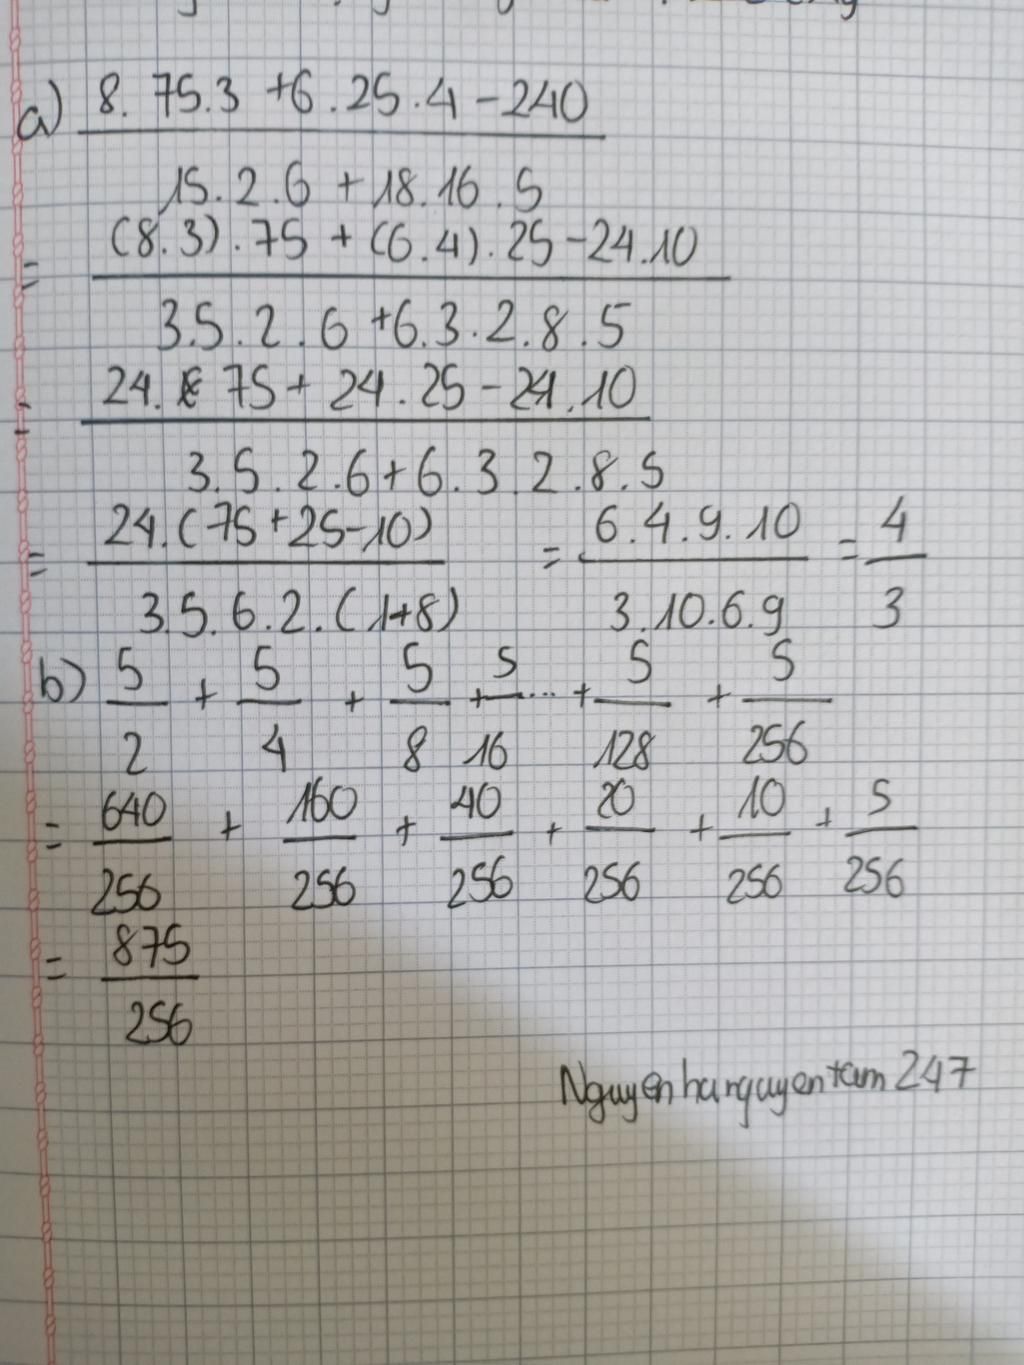 a) 8.75.3+6.25.4-240
15.2.6+18.16.5
= (8.3).75+(6.4).25-24.10
3.5.2.6+6.3.2.8.5
= 24.75+24.25-24.10
3.5.2.6+6.3.2.8.5
= 24.(75+25-10) = 6.4.9.10 = 4
3.5.6.2.(1+8) 3.10.6.9 3
b) 5 + 5 + 5 + 5 ... + 5 + 5
2 4 8 16 128 256
= 640 + 160 + 40 + 20 + 10 + 5
256 256 256 256 256 256
= 875
256
Nguyenhanguyentam247